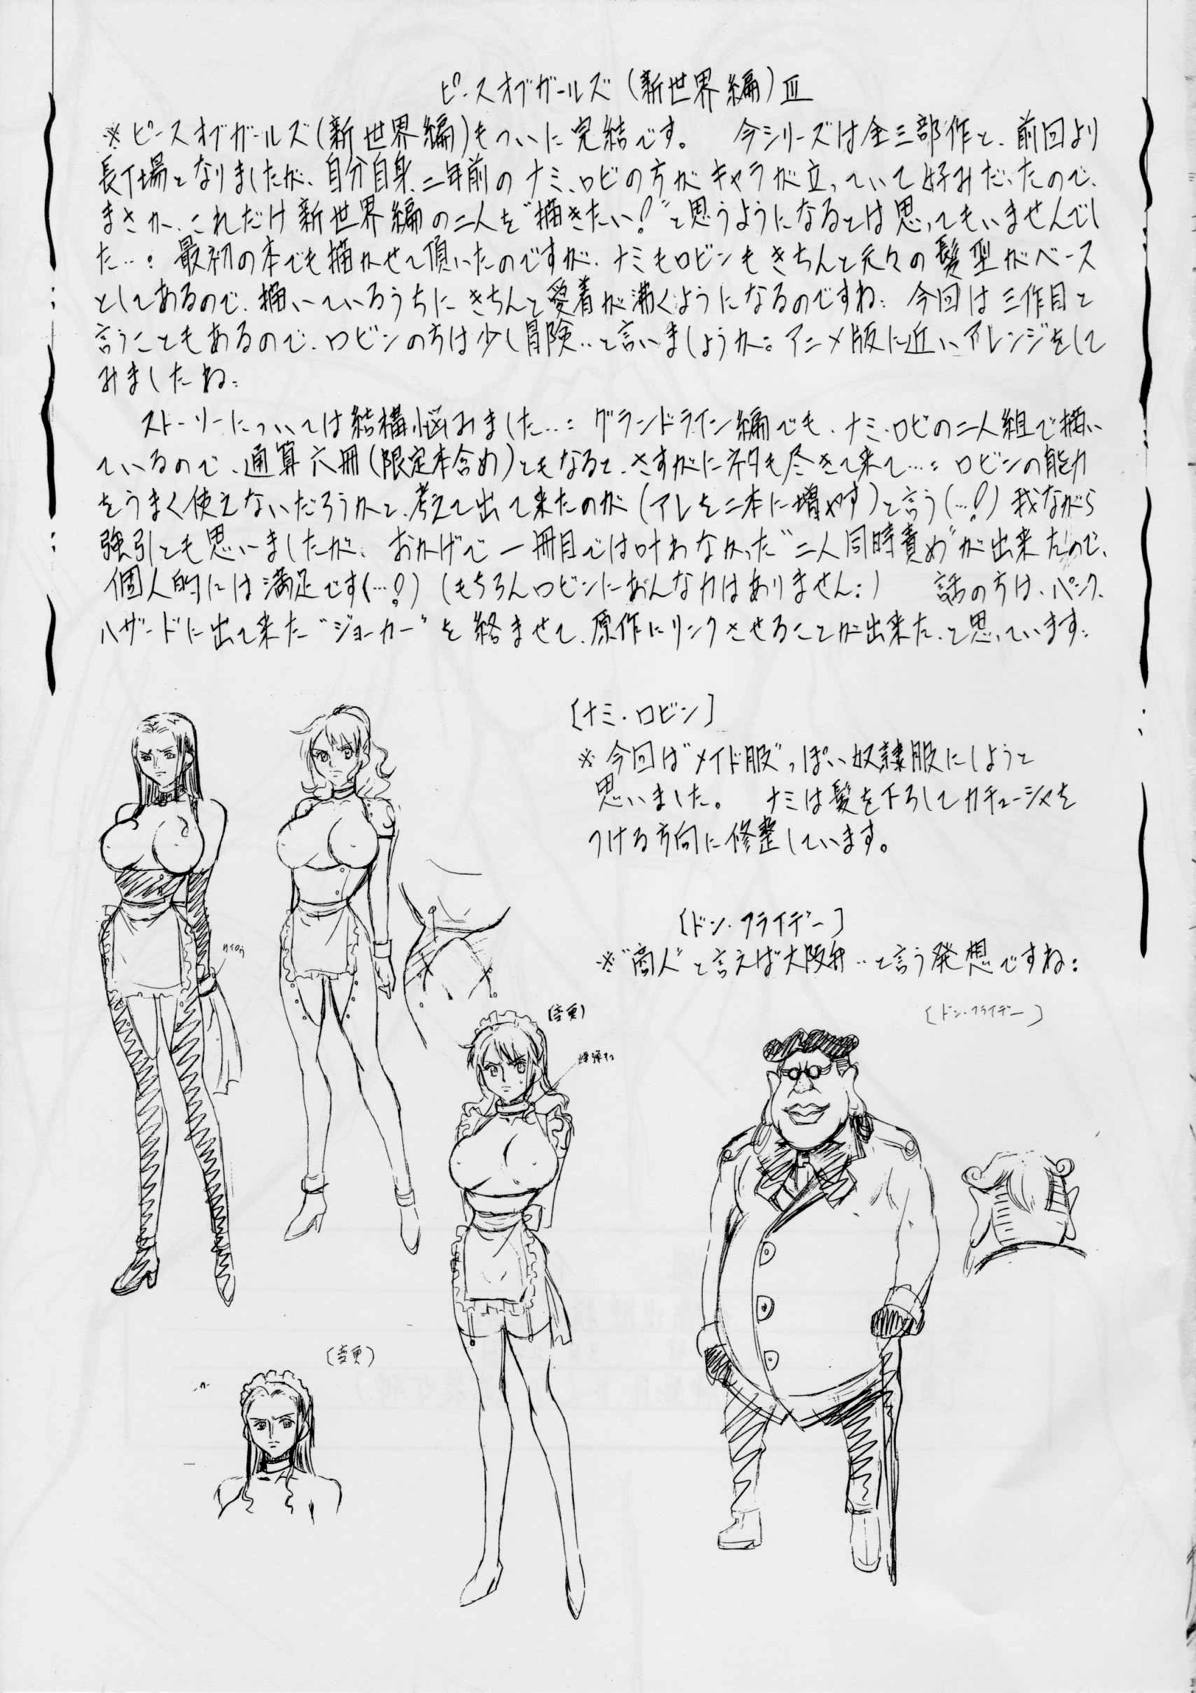 ピースオブガールズ(新世界編)Ⅲ
※ピースオブガールズ(新世界編)もついに完結です。 今シリーズは全三部作と、前回より
長丁場となりましたが、自分自身、二年前のナミ、ロビの方がキャラが立っていて好みだったので、
まさか、これだけ新世界編の二人を"描きたい!"と思うようになるとは思ってもいませんでし
た…: 最初の本でも描かせて頂いたのですが、ナミもロビンもきちんと元々の髪型がベース
としてあるので、描いているうちにきちんと愛着が沸くようになるのですね: 今回は三作目と
言うこともあるので、ロビンの方は少し冒険‥と言いましょうか: アニメ版に近いアレンジをして
みましたね:
ストーリーについては結構悩みました…: グランドライン編でも、ナミ・ロビの二人組で描い
ているので、通算六冊(限定本含め)ともなると、さすがにネタも尽きて来て…: ロビンの能力
をうまく使えないだろうかと、考えて出て来たのが(アレを二本に増やす)と言う(…!)我ながら
強引とも思いましたが、おかげで一冊目では叶わなかった"二人同時責め"が出来たので、
個人的には満足です(…!)(もちろんロビンにあんな力はありません:) 話の方は、パンク
ハザードに出て来た"ジョーカー"を絡ませて、原作にリンクさせることが出来た、と思っています:
[ナミ・ロビン]
※今回は"メイド服"っぽい奴隷服にしようと
思いました。 ナミは髪を下ろしてカチューシャを
つける方向に修整しています。
[ドン・フライデー]
※"商人"と言えば大阪弁‥と言う発想ですね:
[ドン・フライデー]
(変更)
(変更)